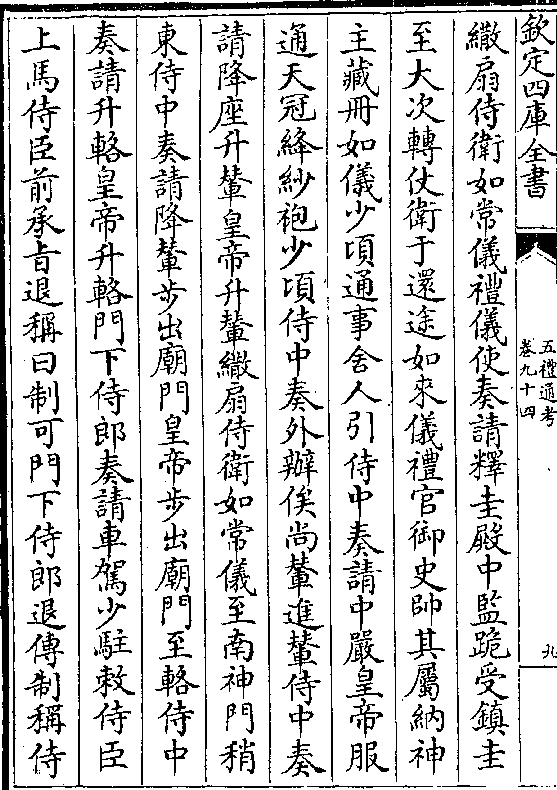 欽定四庫全書
五禮通考
卷九十四
九
繖扇侍衛如常儀禮儀使奏請釋圭殿中監跪受鎮圭
至大次轉仗衛于還途如來儀禮官御史帥其屬納神
主藏冊如儀少頃通事舍人引侍中奏請中嚴皇帝服
通天冠絳紗袍少頃侍中奏外辦俟尚輦進輦侍中奏
請降座升輦皇帝升輦繖扇侍衛如常儀至南神門稍
東侍中奏請降輦步出廟門皇帝步出廟門至輅侍中
奏請升輅皇帝升輅門下侍郎奏請車駕少駐敕侍臣
上馬侍臣前承旨退稱曰制可門下侍郎退傳制稱侍